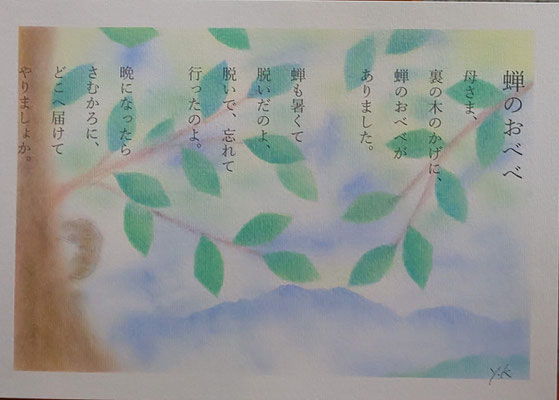 蝉のおべべ
母さま、
裏の木のかげに、
蝉のおべべが
ありました。
蝉も暑くて
脱いだのよ、
脱いで、忘れて
行ったのよ。
晩になったら
さむかろに、
どこへ届けて
やりましょか。
Y.K